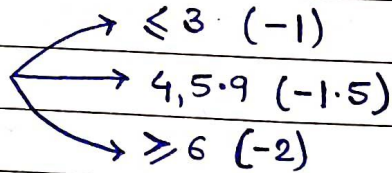 → ≤ 3 (-1)
→ 4, 5·9 (-1·5)
→ ≥ 6 (-2)